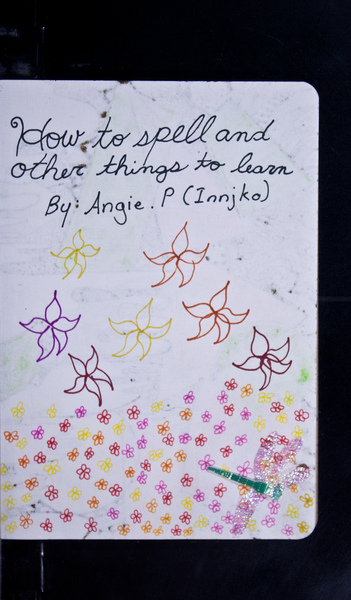 How to spell and
other things to learn
By: Angie. P (Innjko)